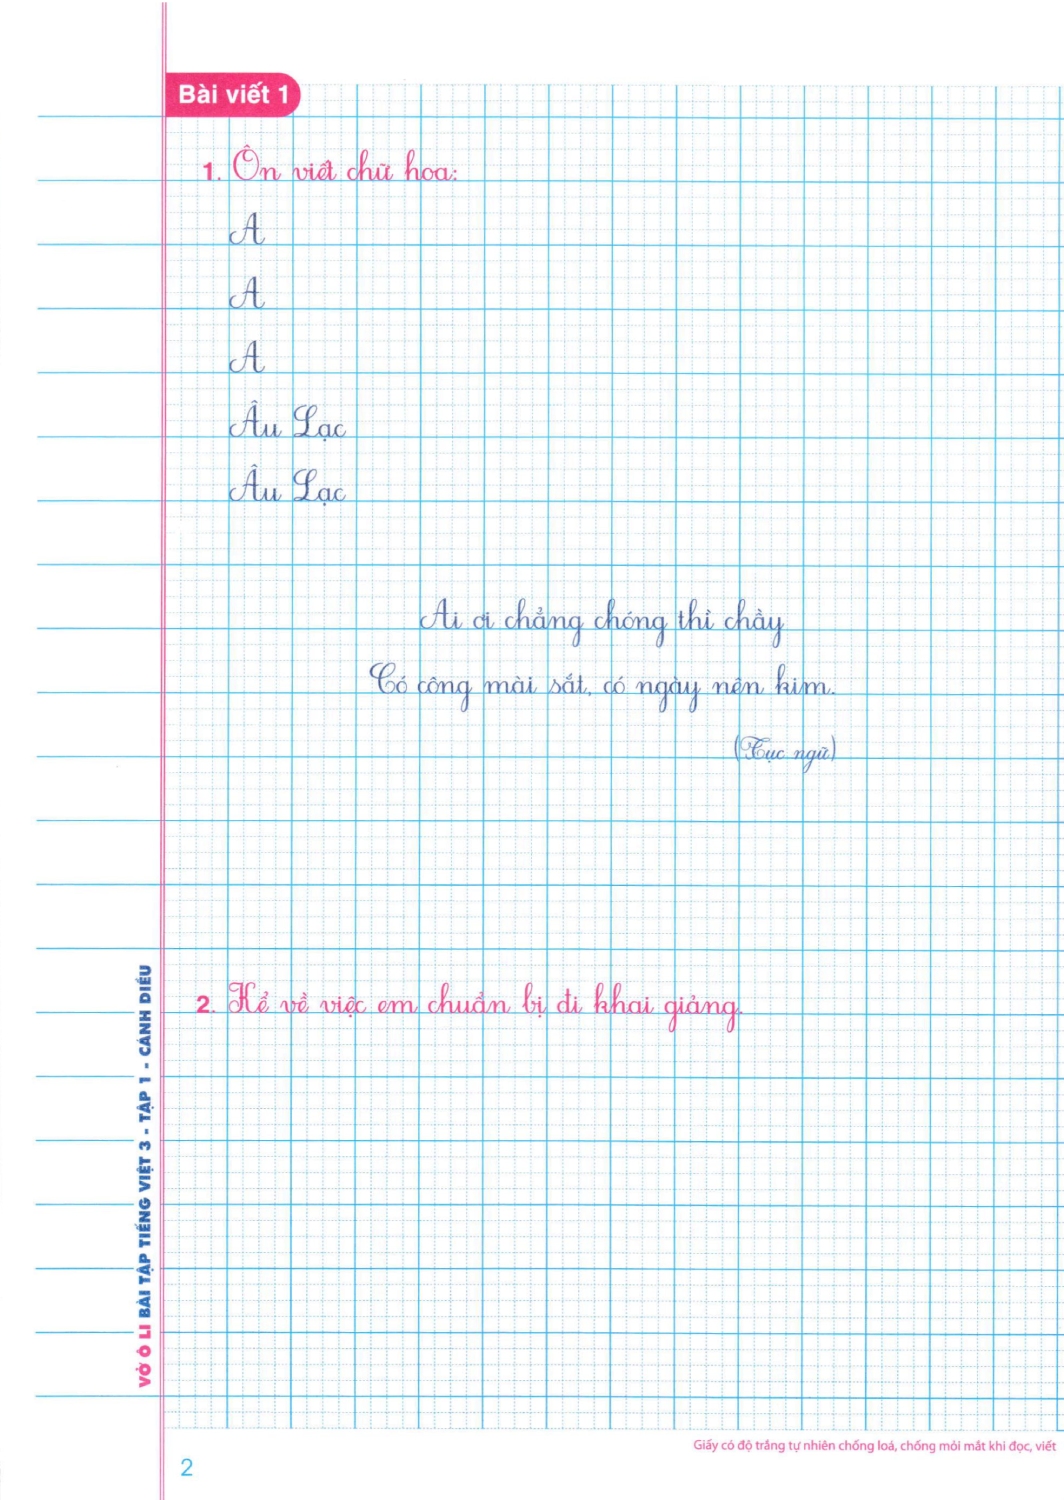 Bài viết 1
1. Ôn viết chữ hoa:
A
A
A
Âu Lạc
Âu Lạc
Ai ơi chẳng chóng thì chầy
Có công mài sắt, có ngày nên kim.
(Tục ngữ)
2. Kể về việc em chuẩn bị đi khai giảng.
VỞ Ô LI BÀI TẬP TIẾNG VIỆT 3 - TẬP 1 - CÁNH DIỀU
Giấy có độ trắng tự nhiên chống loá, chống mỏi mắt khi đọc, viết
2